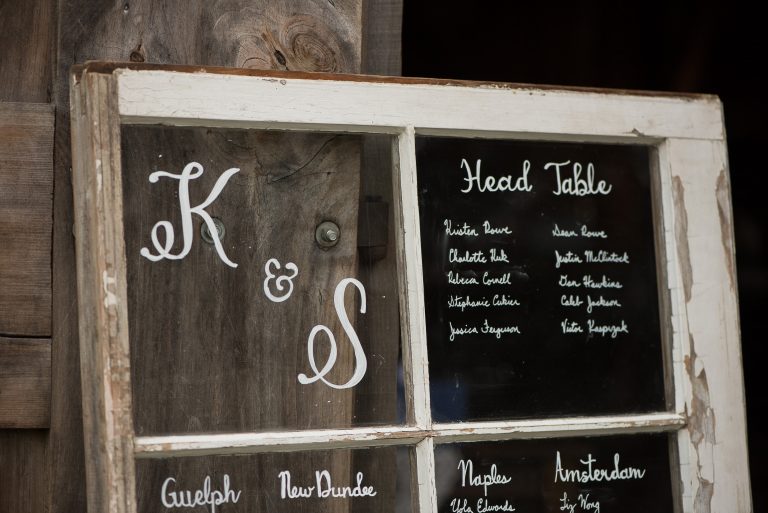 K
&
S
Head Table
Kristen Rowe
Charlotte Huk
Rebecca Cornell
Stephanie Cukier
Jessica Ferguson
Sean Rowe
Justin McClintock
Ian Hawkins
Caleb Jackson
Victor Kasprzak
Guelph
New Dundee
Naples
Yola Edwards
Amsterdam
Liz Wong